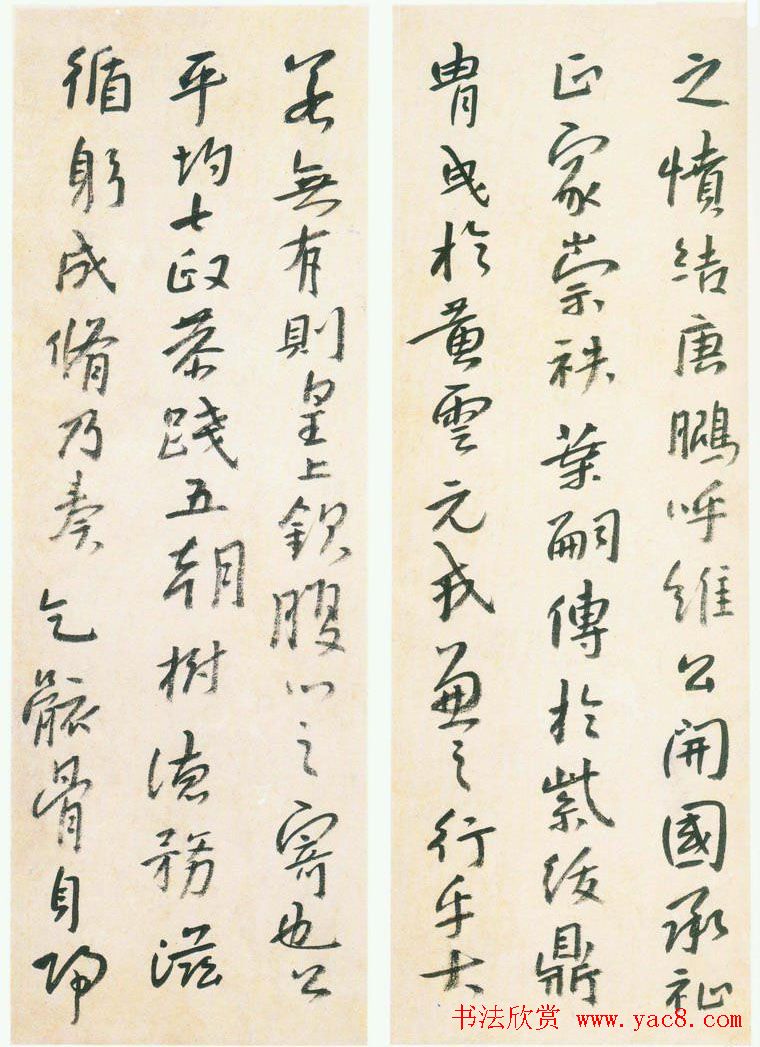 之憤結唐鵬呼維公開國承祉
正家崇秩葉嗣傳於紫綬鼎
胄或於黃雲元戎重之行乎大
若無有則皇上鋭腹心之寄也公
平均七政恭踐五朝樹德務滋
循躬成脩乃奏乞骸骨自歸
书法欣赏 www.yac8.com